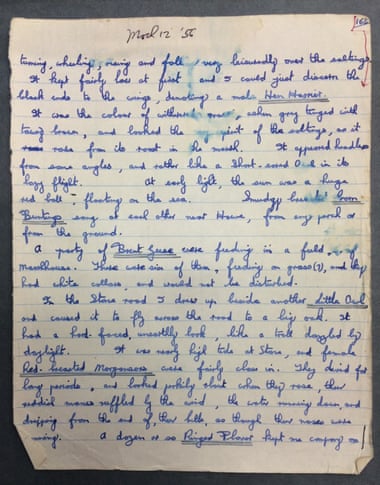 March 12 '56
166
turning, wheeling, rising and falling very leisurely over the saltings.
It kept fairly low at first and I could just discern the
black ends to the wings, denoting a male Hen Harrier.
It was the colour of withered , ashen grey tinged with
tawny brown, and looked the very spirit of the saltings, as it
rose from its roost in the marsh. It appeared headless
from some angles, and rather like a Short-eared Owl in its
lazy flight. At early light, the sun was a huge
red ball - floating on the sea. Smudgy Corn
Buntings sang at each other near Howe, from any perch or
from the ground.
A party of Brent Geese were feeding in a field, nr
marshhouse. There were six of them, feeding on grass (?), and they
had white collars, and would not be disturbed.
In the Stone road I drew up beside another Little Owl
and caused it to fly across the road to a big oak. It
had a hard-faced, unearthly look, like a troll dazzled by
daylight. It was nearly high tide at Stone, and female
Red-breasted Mergansers were fairly close in. They dived for
long periods, and looked perkily about when they rose, their
reddish manes ruffled by the wind, the water running down, and
dripping from the end of their bills, as though their noses were
running. A dozen or so Ringed Plover kept me company on